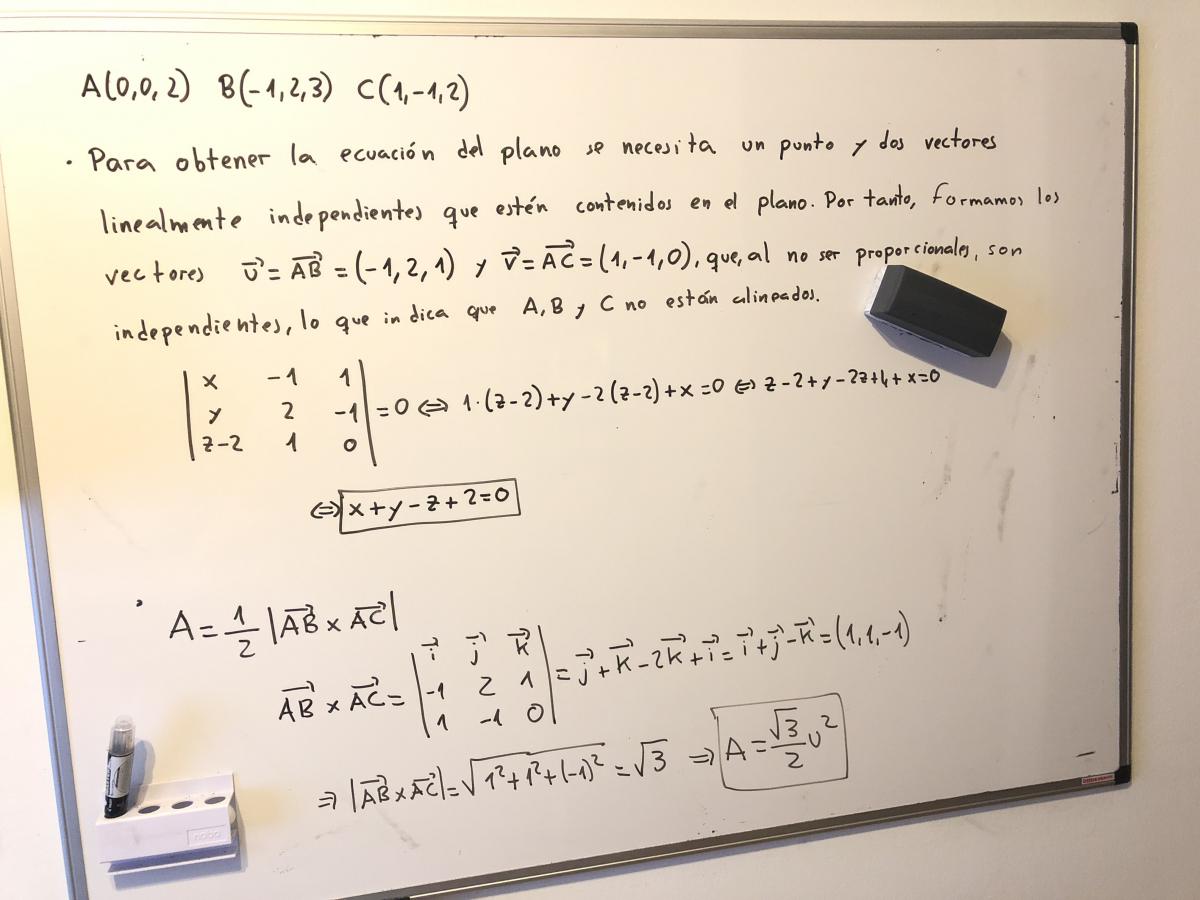 A(0,0,2) B(-1,2,3) C(1,-1,2)
· Para obtener la ecuación del plano se necesita un punto y dos vectores
linealmente independientes que estén contenidos en el plano. Por tanto, formamos los
vectores u⃗ = AB⃗ = (-1,2,1) y v⃗ = AC⃗ = (1,-1,0), que, al no ser proporcionales, son
independientes, lo que indica que A, B y C no están alineados.
| x -1 1 |
| y 2 -1 | = 0 ⇔ 1·(z-2)+y-2(z-2)+x=0 ⇔ z-2+y-2z+4+x=0
| z-2 1 0 |
⇔ x+y-z+2=0
· A = 1/2 |AB⃗ x AC⃗|
AB⃗ x AC⃗ = | i⃗ j⃗ k⃗ |
| -1 2 1 | = j⃗+k⃗-2k⃗+i⃗ = i⃗+j⃗-k⃗ = (1,1,-1)
| 1 -1 0 |
⇒ |AB⃗ x AC⃗| = √(1²+1²+(-1)²) = √3 ⇒ A = √3/2 u²
nobo